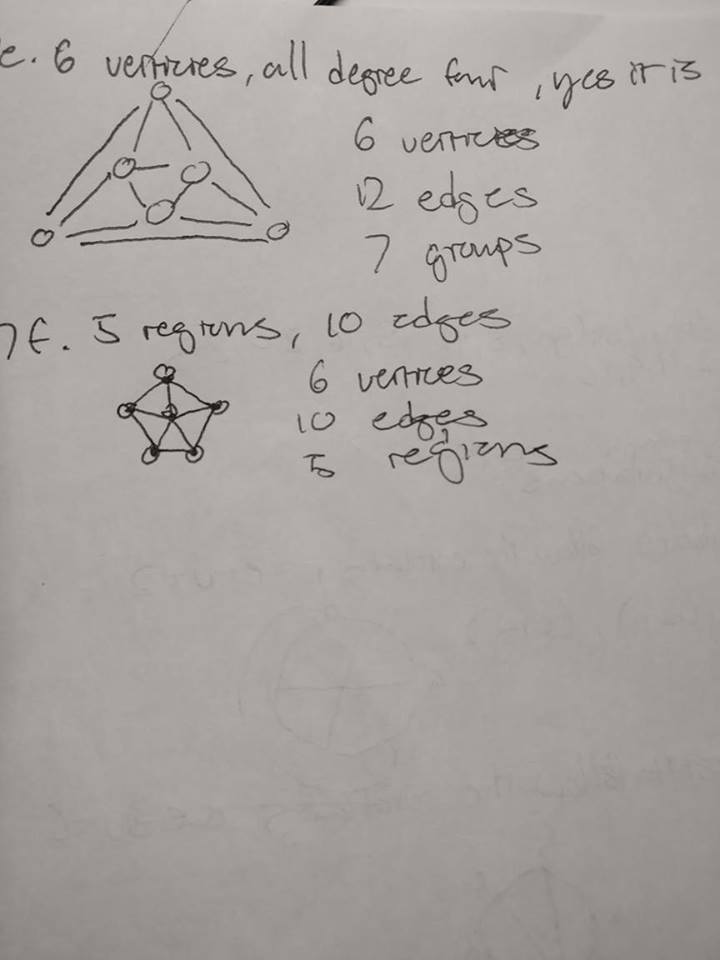 e. 6 verticies, all degree four, yes it is
6 vertices
12 edges
7 groups
7f. 5 regions, 10 edges
6 vertices
10 edges
5 regions